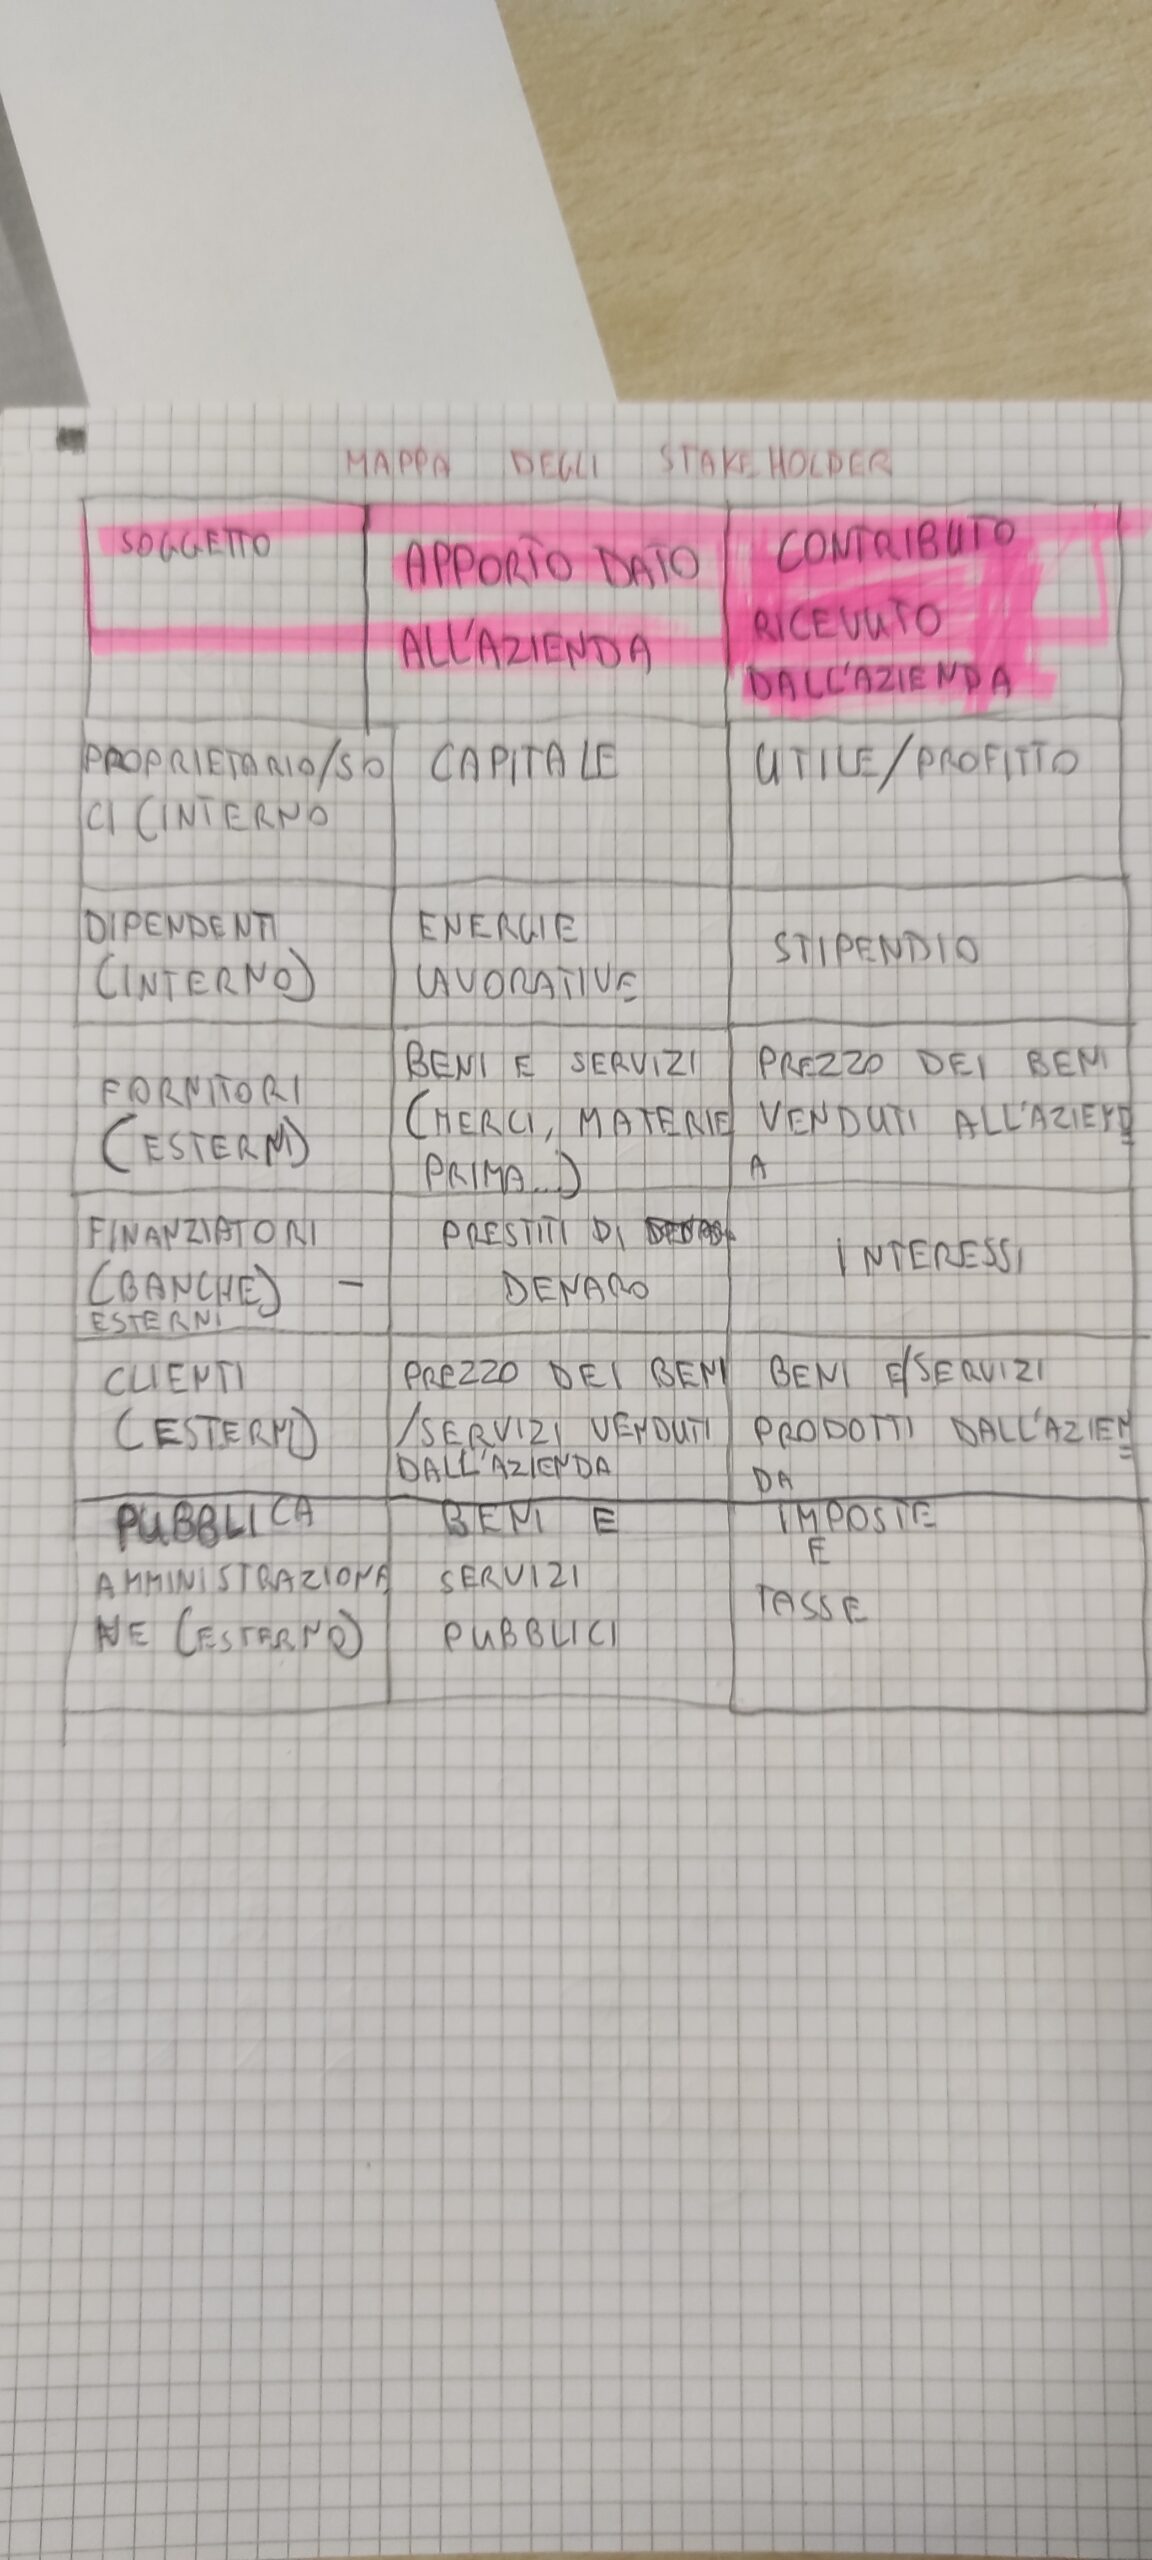 MAPPA DEGLI STAKEHOLDER
SOGGETTO
APPORTO DATO
ALL'AZIENDA
CONTRIBUTO
RICEVUTO
DALL'AZIENDA
PROPRIETARIO/SO
CI (INTERNO
CAPITALE
UTILE/PROFITTO
DIPENDENTI
(INTERNO)
ENERGIE
LAVORATIVE
STIPENDIO
FORNITORI
(ESTERNI)
BENI E SERVIZI
(MERCI, MATERIE
PRIMA...)
PREZZO DEI BENI
VENDUTI ALL'AZIEND
A
FINANZIATORI
(BANCHE) -
ESTERNI
PRESTITI DI
DENARO
INTERESSI
CLIENTI
(ESTERNI)
PREZZO DEI BENI
/SERVIZI VENDUTI
DALL'AZIENDA
BENI E/SERVIZI
PRODOTTI DALL'AZIEN
DA
PUBBLICA
AMMINISTRAZIONA
NE (ESTERNO)
BENI E
SERVIZI
PUBBLICI
IMPOSTE
E
TASSE